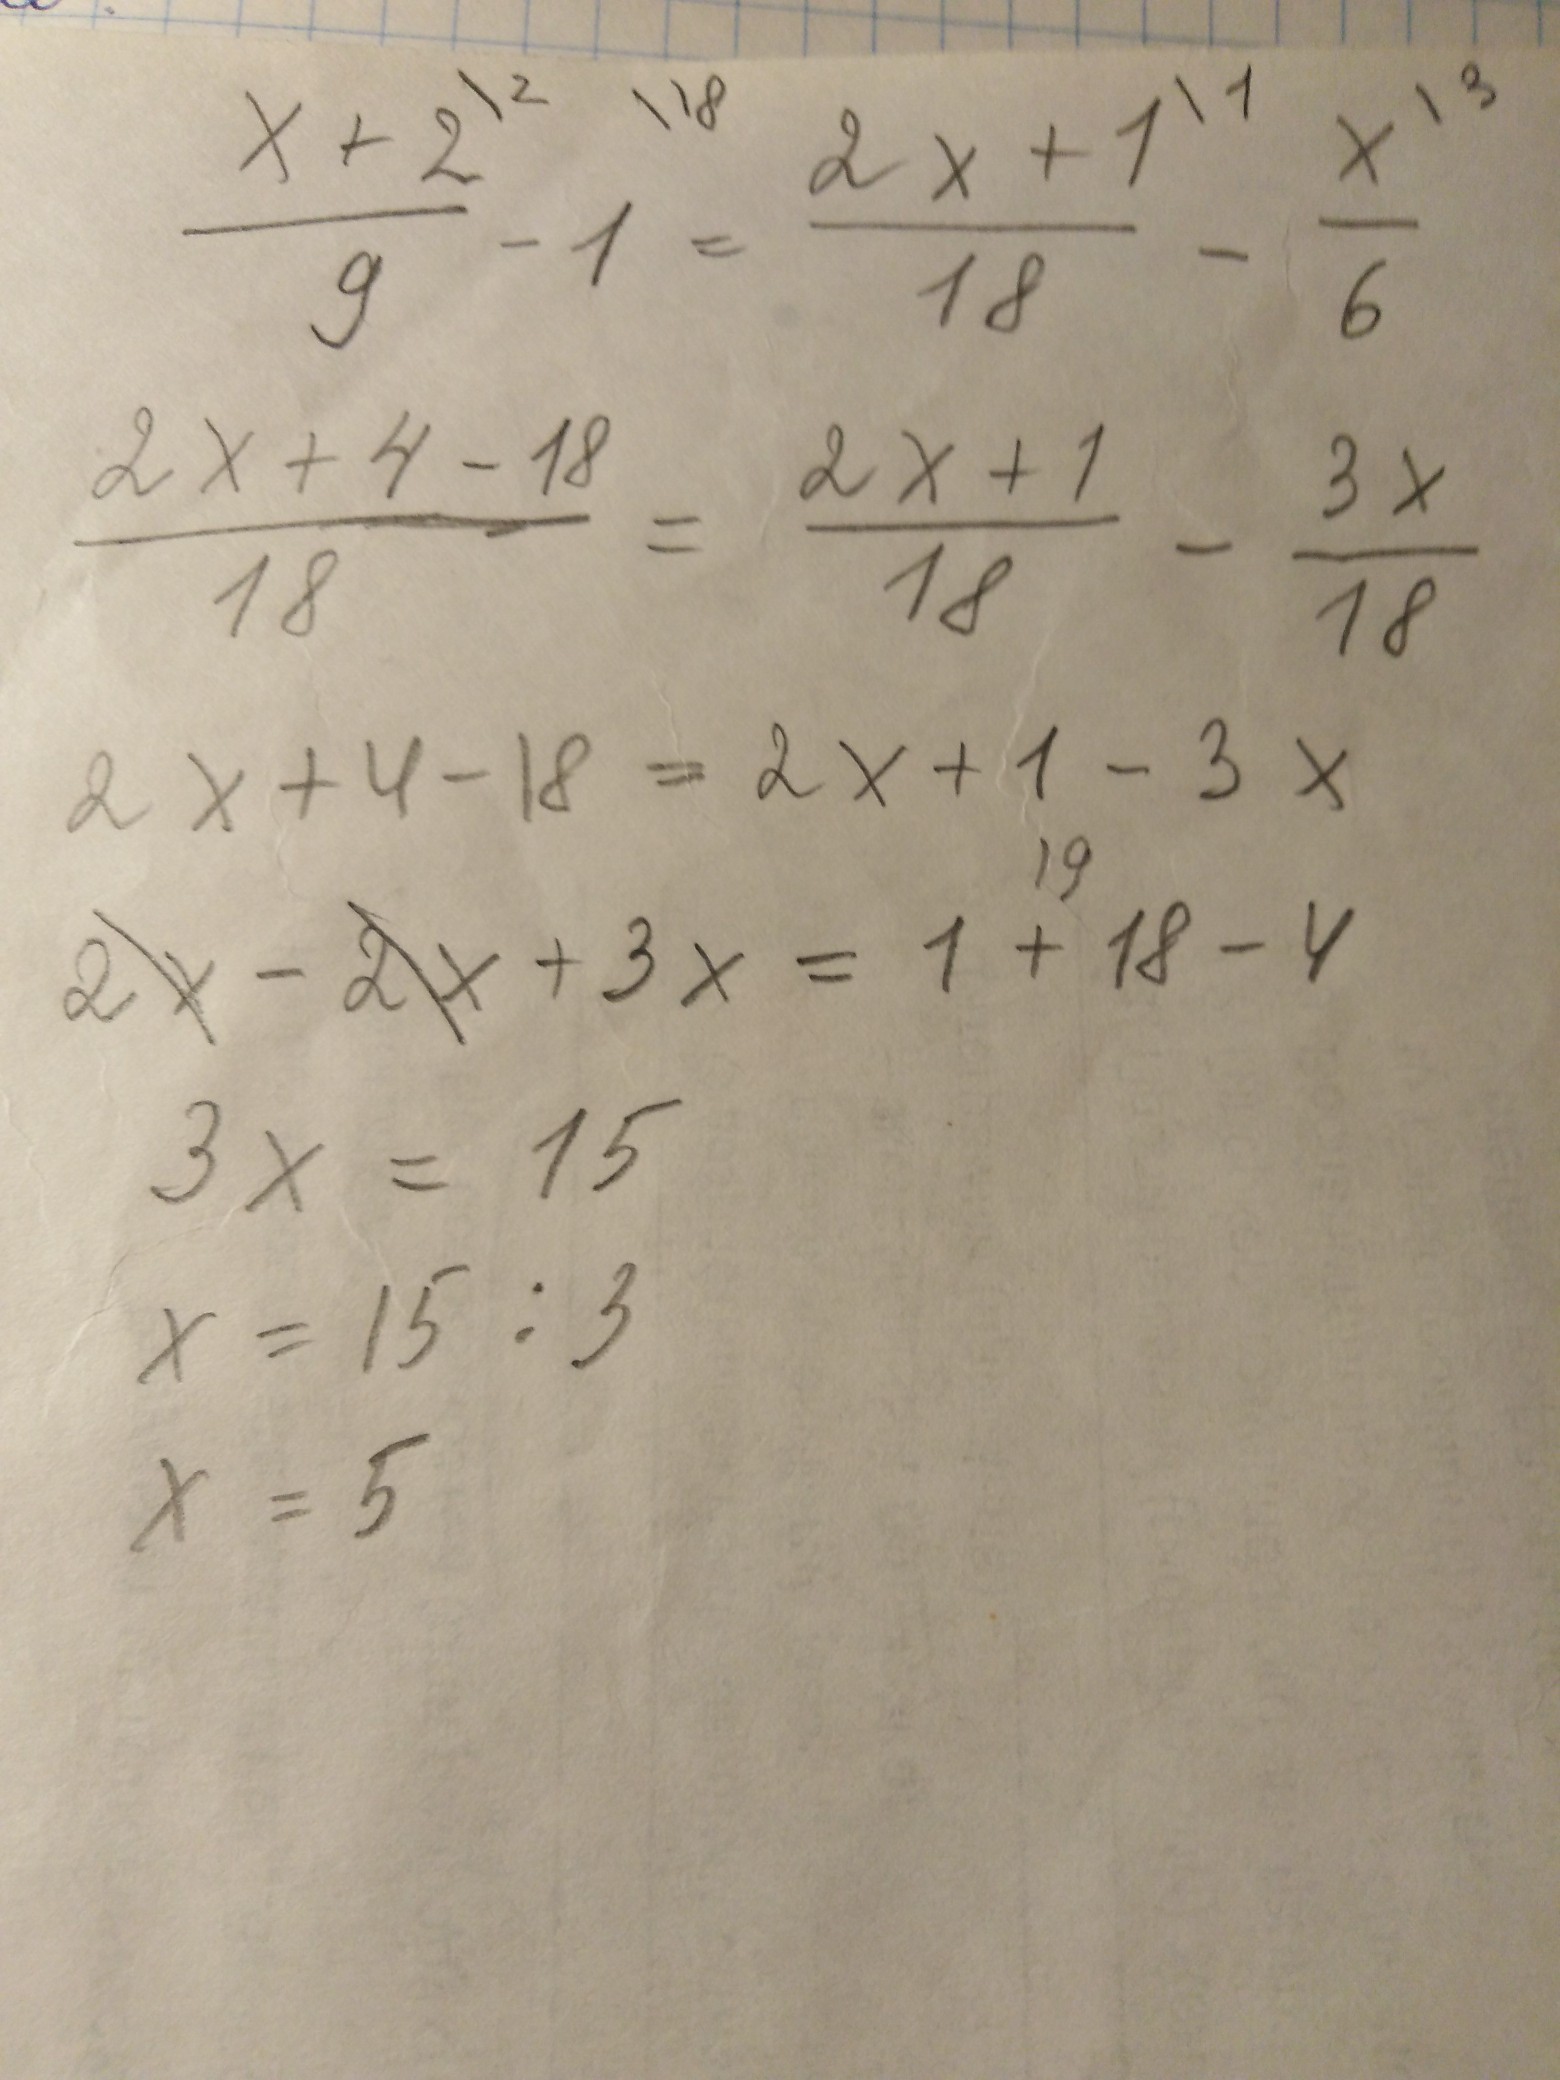 (x + 2)/9 \2 - 1 \18 = (2x + 1)/18 \1 - x/6 \3
(2x + 4 - 18)/18 = (2x + 1)/18 - 3x/18
2x + 4 - 18 = 2x + 1 - 3x
19
2x - 2x + 3x = 1 + 18 - 4
3x = 15
x = 15 : 3
x = 5